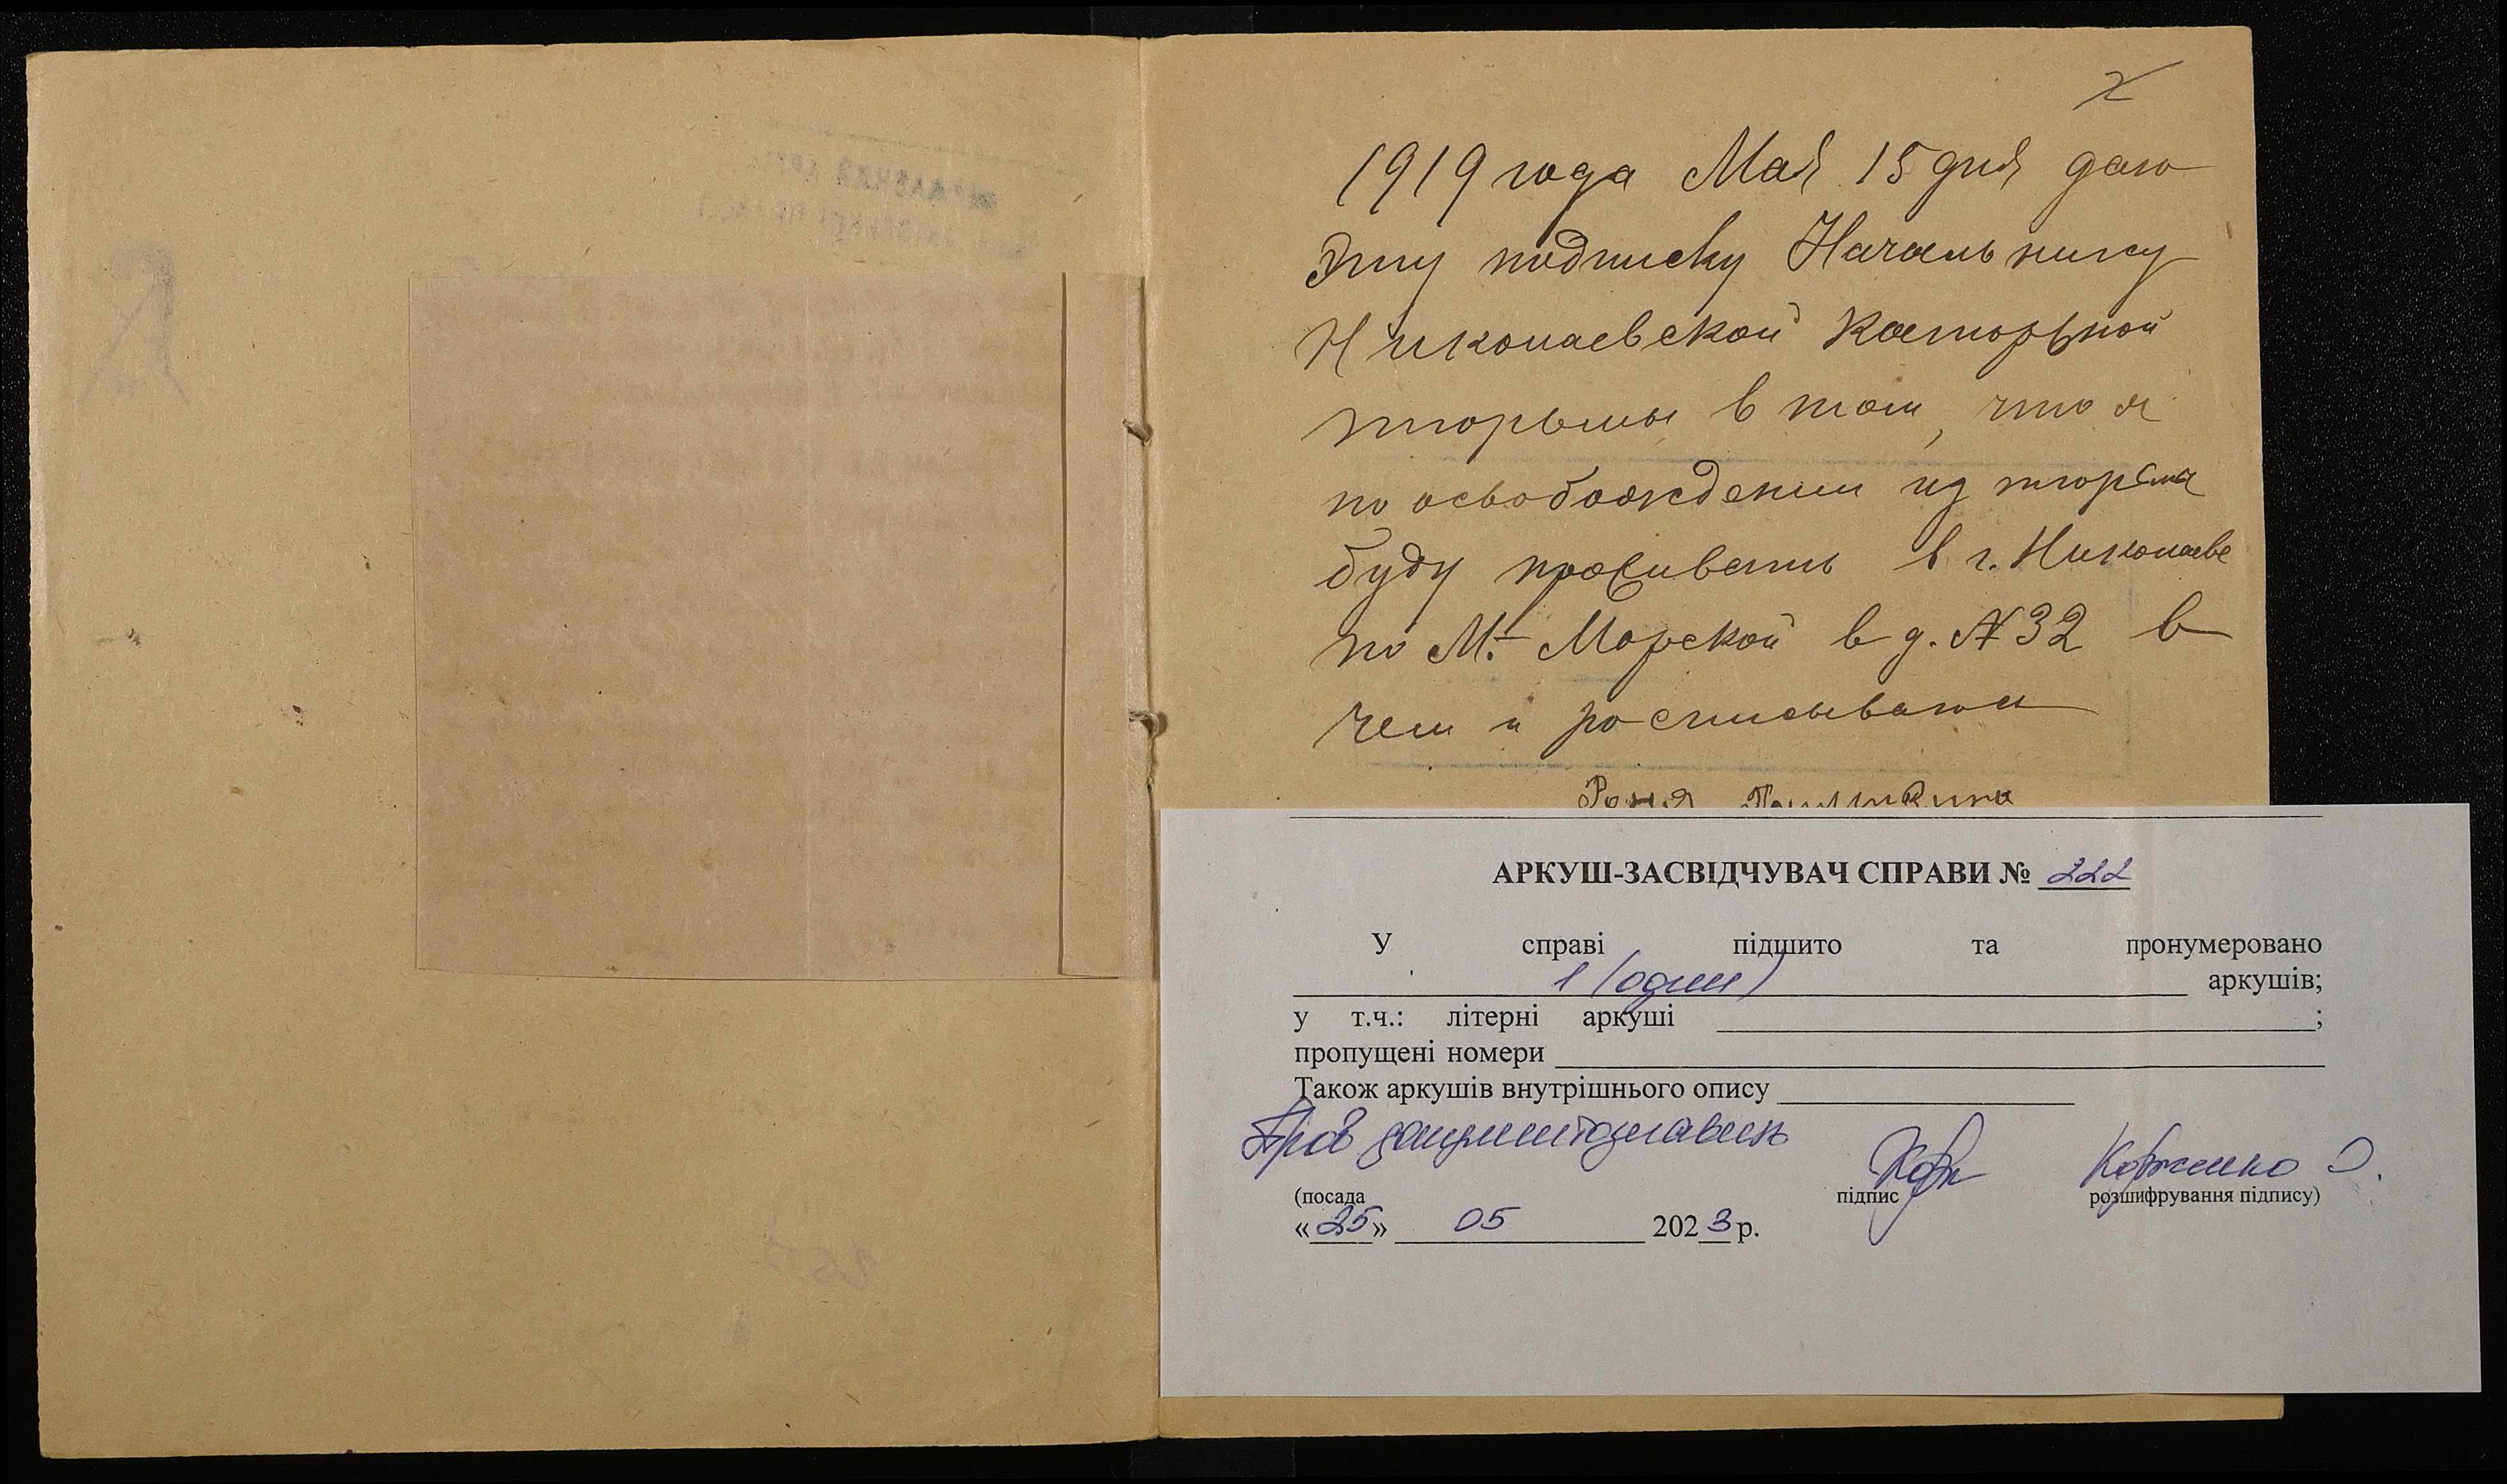 1919 года Мая 15 дня даю
эту подписку Начальнику
Николаевской Каторжной
тюрьмы в том, что я
по освобождении из тюрьмы
буду проживать в г. Николаеве
по М.- Морской в д. № 32 в
чем и росписываюсь
АРКУШ-ЗАСВІДЧУВАЧ СПРАВИ № 222
У справі підшито та пронумеровано
1 (один) аркушів;
у т.ч.: літерні аркуші ;
пропущені номери
Також аркушів внутрішнього опису
Пров документознавець
(посада підпис розшифрування підпису)
«25» 05 2023 р.